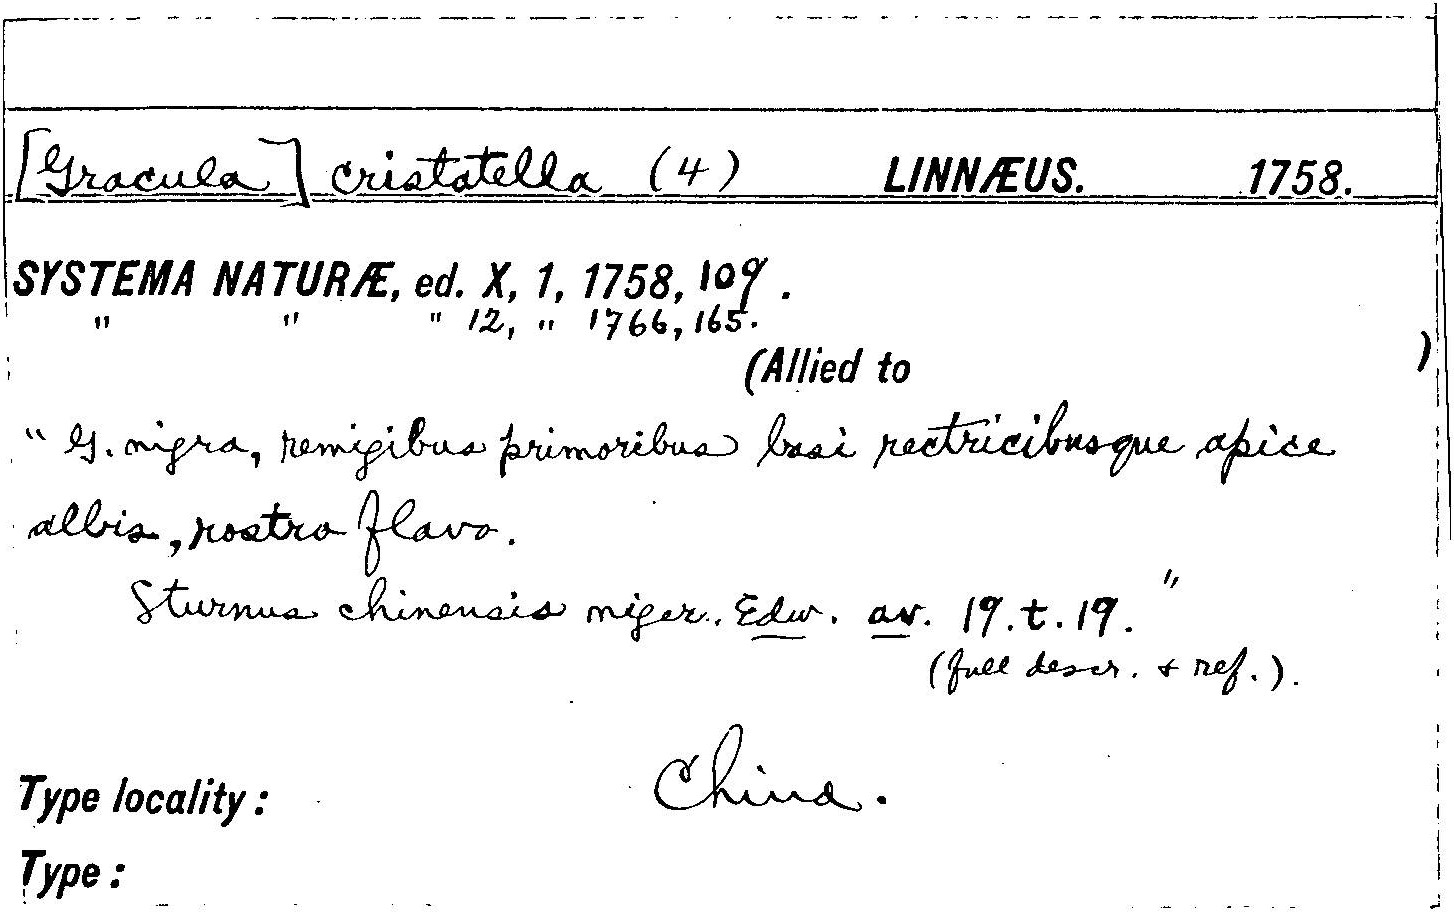 [Gracula] cristatella (4) LINNÆUS. 1758.
SYSTEMA NATURÆ, ed. X, 1, 1758, 109.
" " " 12, " 1766, 165.
(Allied to )
"G. nigra, remigibus primoribus basi rectricibusque apice
albis, rostro flavo.
Sturnus chinensis niger. Edw. av. 19. t. 19."
(full descr. & ref.).
Type locality: China.
Type: